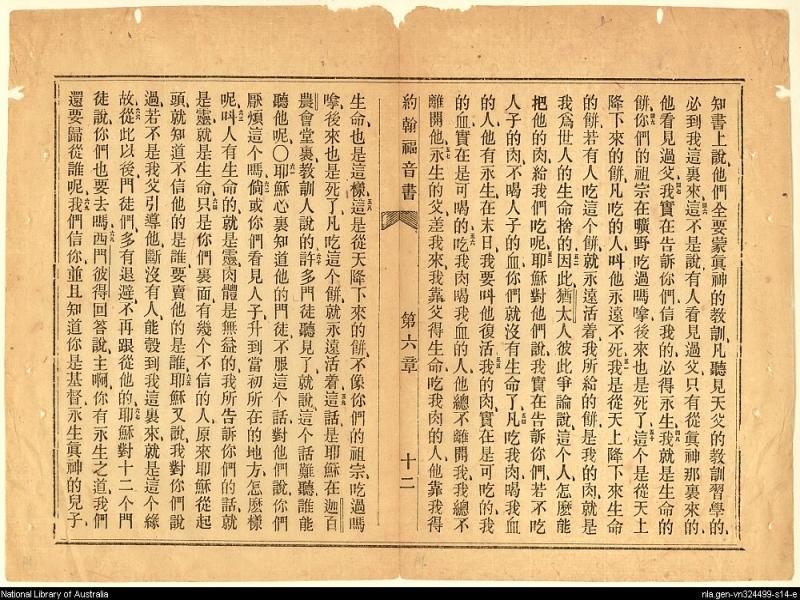 知書上說他們全要蒙眞神的教訓凡聽見天父的教訓習學的
必到我這裏來四六這不是說有人看見過父只有從眞神那裏來的
他看見過父四七我實在告訴你們信我的必得永生四八我就是生命的
餅四九你們的祖宗在曠野吃過嗎嗱後來也是死了五十這個是從天上
降下來的餅凡吃的人叫他永遠不死五一我是從天上降下來生命
的餅若有人吃這個餅就永遠活着我所給的餅是我的肉就是
我爲世人的生命捨的五二因此猶太人彼此爭論說這個人怎麼能
把他的肉給我們吃呢五三耶穌對他們說我實在告訴你們若不吃
人子的肉不喝人子的血你們就沒有生命了五四凡吃我肉喝我血
的人他有永生在末日我要叫他復活五五我的肉實在是可吃的我
的血實在是可喝的五六吃我肉喝我血的人他總不離開我我總不
離開他五七永生的父差我來我靠父得生命吃我肉的人他靠我得
約翰福音書 第六章 十二
生命也是這樣五八這是從天降下來的餅不像你們的祖宗吃過嗎
嗱後來也是死了凡吃這個餅就永遠活着五九這話是耶穌在迦百
農會堂裏教訓人說的六十許多門徒聽見了就說這個話難聽誰能
聽他呢〇六一耶穌心裏知道他的門徒不服這個話對他們說你們
厭煩這個嗎六二倘或你們看見人子升到當初所在的地方怎麼樣
呢六三叫人有生命的就是靈肉體是無益的我所告訴你們的話就
是靈就是生命六四只是你們裏面有幾個不信的人原來耶穌從起
頭就知道不信他的是誰要賣他的是誰六五耶穌又說我對你們說
過若不是我父引導他斷沒有人能彀到我這裏來就是這個緣
故六六從此以後門徒們多有退避不再跟從他的六七耶穌對十二個門
徒說你們也要去嗎六八西門彼得回答說主啊你有永生之道我們
還要歸從誰呢六九我們信你並且知道你是基督永生眞神的兒子
National Library of Australia
nla.gen-vn324499-s14-e